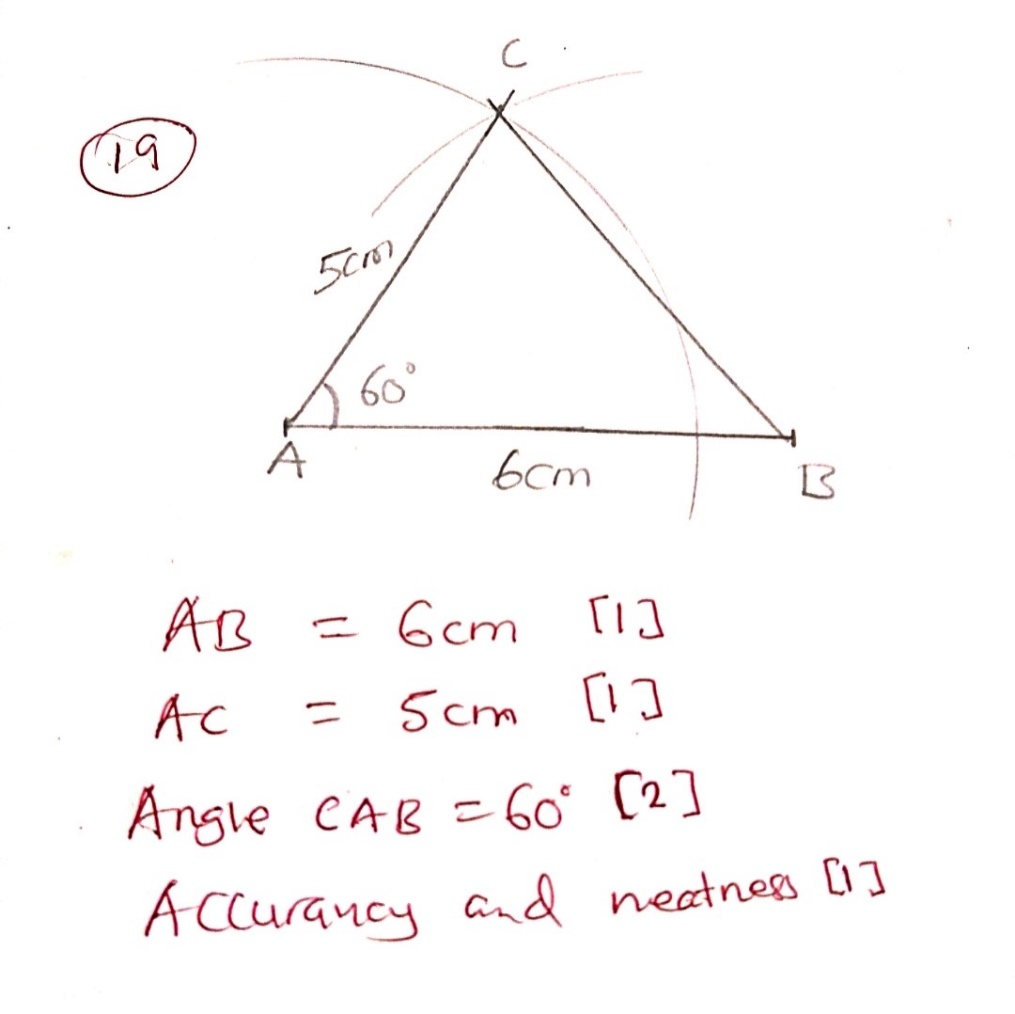 C
19
5cm
60°
A
6cm
B
AB = 6cm [1]
AC = 5cm [1]
Angle CAB = 60° [2]
Accurancy and neatness [1]